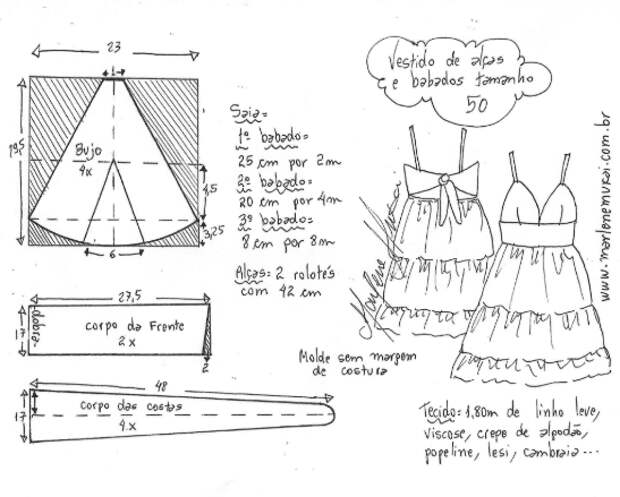 Vestido de alças
e babados tamanho
50
23
1
19,5
Bujo
4x
4,5
3,25
6
Saia=
1º babado=
25 cm por 2m
2º babado=
20 cm por 4m
3º babado=
8 cm por 8m
Alças: 2 rolotés
com 42 cm
27,5
17
dobra
corpo da Frente
2x
2
Molde sem margem
de costura
48
17
corpo das costas
4x
Marlene Mukai
www.marlenemukai.com.br
Tecido= 1,80m de linho leve,
viscose, crepe de algodão,
popeline, lesi, cambraia...